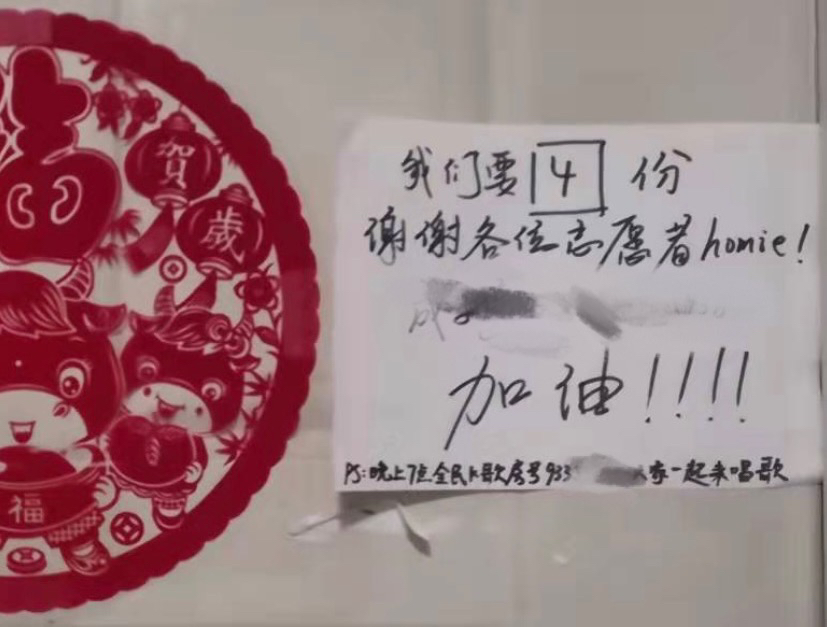 賀
歲
福
我们要4份
谢谢各位志愿者homie!
加油!!!!
PS:晚上7点全民K歌房号933 家一起来唱歌